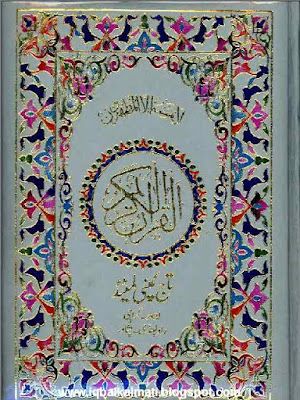 لا يمسه الا المطهرون
القرآن الكريم
تاج کمپنی لمیٹڈ
www.iqbalkalmati.blogspot.com